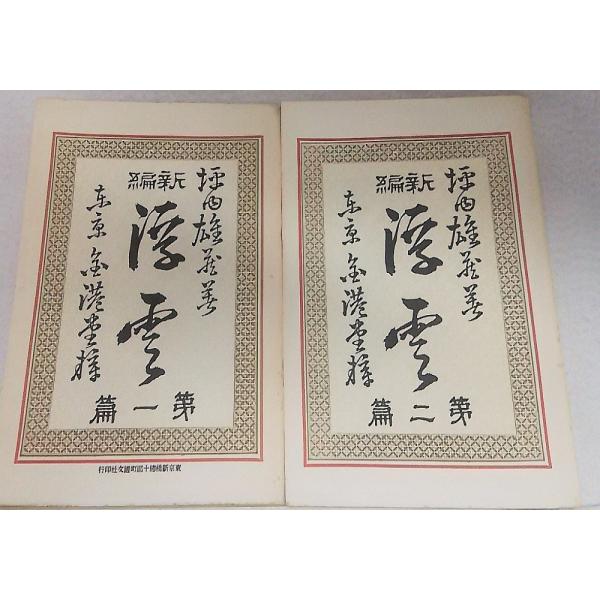 新編
坪内雄蔵著
浮雲
東京 金港堂梓
第一篇
東京新橋惣十郎町國文社印行
新編
坪内雄蔵著
浮雲
東京 金港堂梓
第二篇